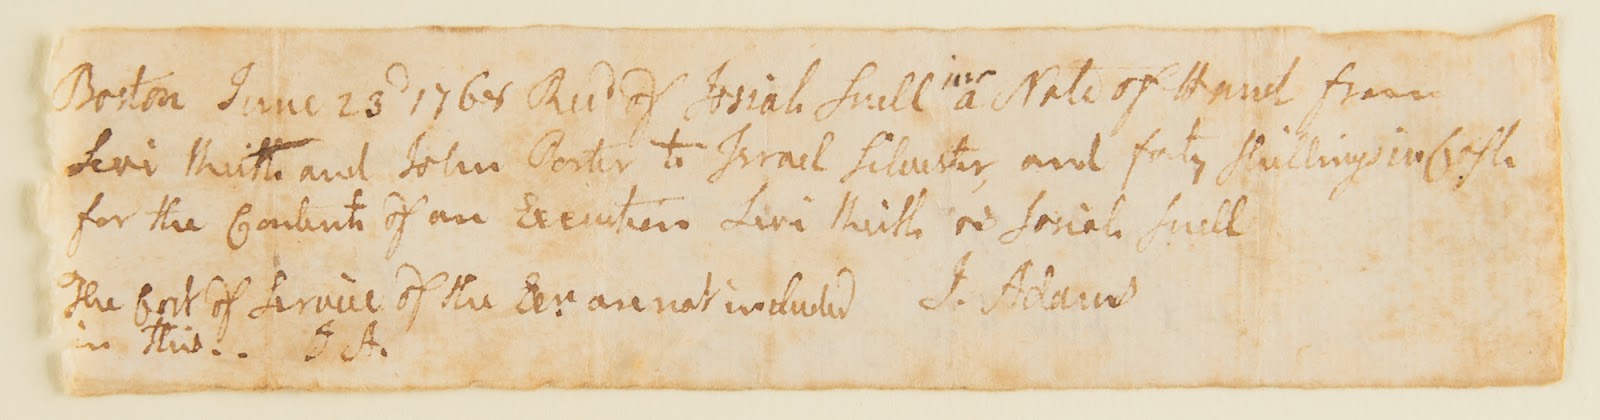 Boston June 23d 1768 Recd of Josiah Snell junr a Note of Hand from
Levi Keith and John Porter to Israel Silvester, and forty shillings in Cash
for the Contents of an Execution Levi Keith vs Josiah Snell
The Cost of Service of the Exn. are not included J. Adams
in this.. J A.